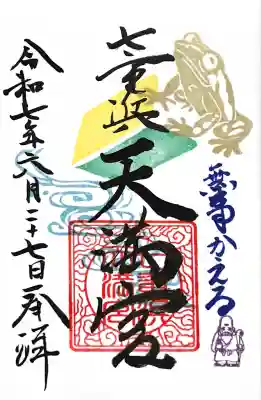 無事かえる
七重浜天満宮
令和七年六月二十七日奉拝